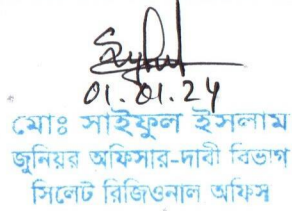 01.01.24
মোঃ সাইফুল ইসলাম
জুনিয়র অফিসার-দাবী বিভাগ
সিলেট রিজিওনাল অফিস